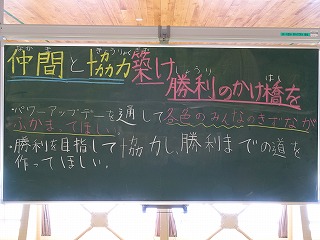 仲間と協力築け勝利のかけ橋を
・パワーアップデーを通して各色のみんなのきずなが
ふかまってほしい。
・勝利を目指して協力し、勝利までの道を
作ってほしい。